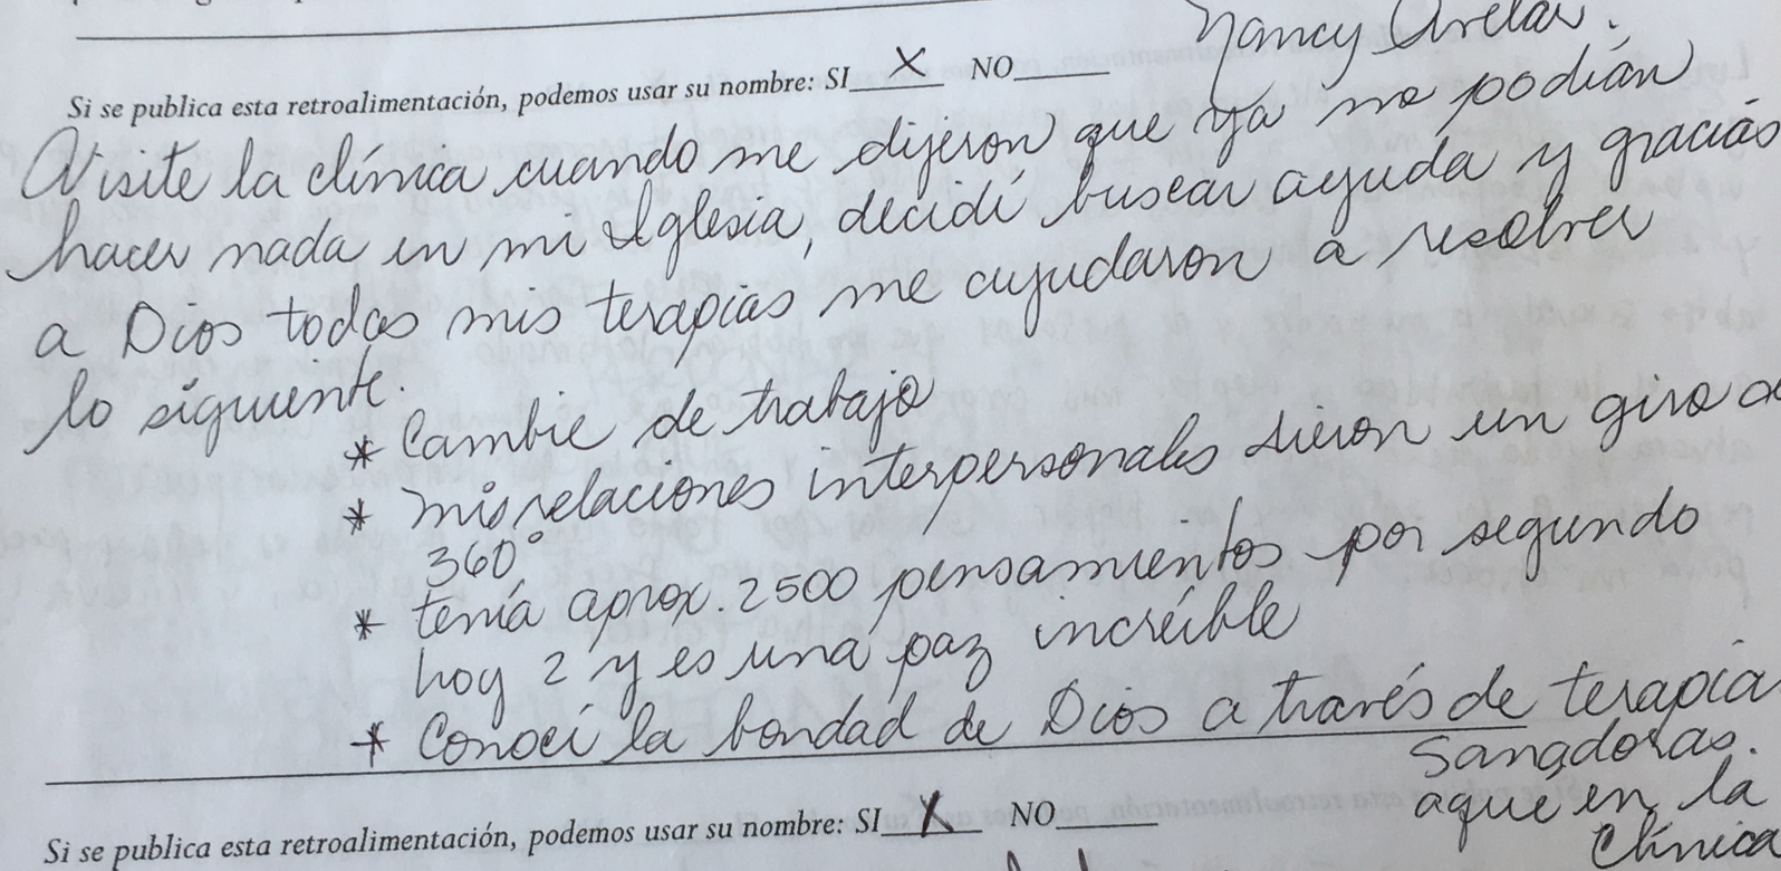 Nancy Avelar.
Si se publica esta retroalimentación, podemos usar su nombre: SI X NO
Visite la clínica cuando me dijeron que ya no podían
hacer nada en mi Iglesia, decidí buscar ayuda y gracias
a Dios todas mis terapias me ayudaron a resolver
lo siguiente.
* Cambie de trabajo
* mis relaciones interpersonales dieron un giro de
360°
* tenía aprox. 2500 pensamientos por segundo
hoy 2 y es una paz increíble
* Conocí la bondad de Dios a través de terapia
Sanadoras.
aque en la
Clínica
Si se publica esta retroalimentación, podemos usar su nombre: SI X NO